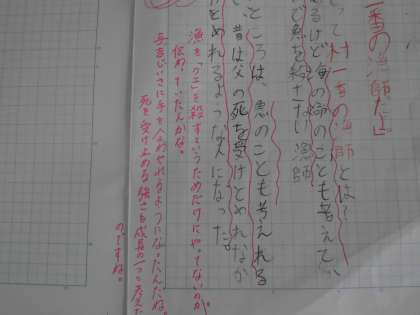 一番の漁師だ」
って村一番の漁師とは？
るけど魚の命のことも考えてい
で魚を殺さない漁師
ところは、恵のことも考えれる
昔は父の死を受けとめれなか
とめれるようになった。
漁を「クエ」を殺すというためだけにやってないのが、
伝わっていたんかな。
手を合わせれるようになったんだね。
死を受け止める強さも成長の一つと考えた
のですね。